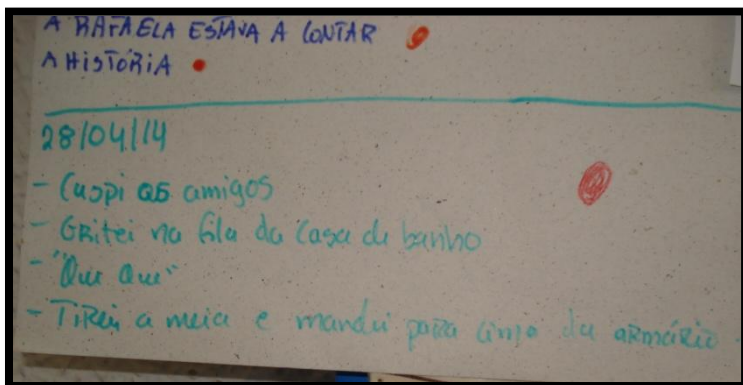 A RAFAELA ESTAVA A CONTAR
A HISTÓRIA
28/04/14
- Cuspi aos amigos
- GRitei na fila da casa de banho
- "Qui Qui"
- TiRei a meia e mandei para cima do aRmáRio